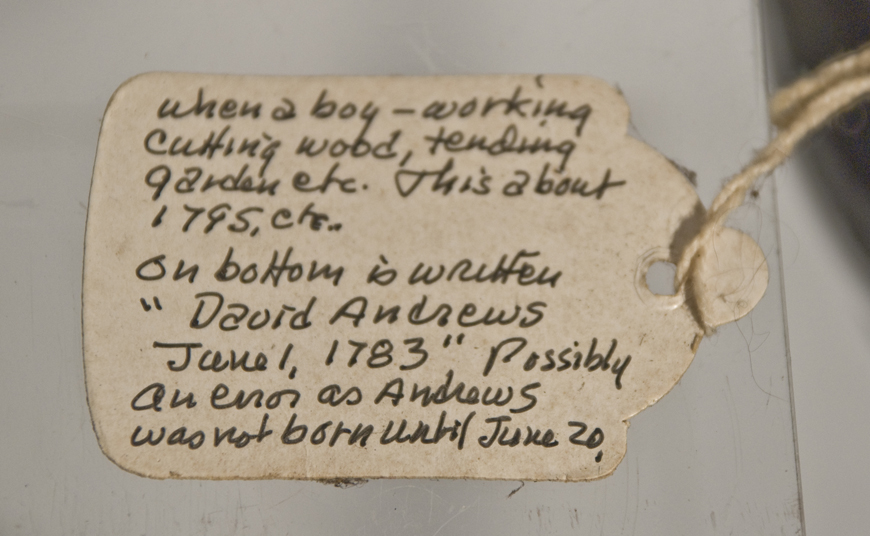 when a boy – working
cutting wood, tending
garden etc. This about
1795, etc..
On bottom is written
" David Andrews
June 1, 1783" Possibly
an error as Andrews
was not born until June 20,